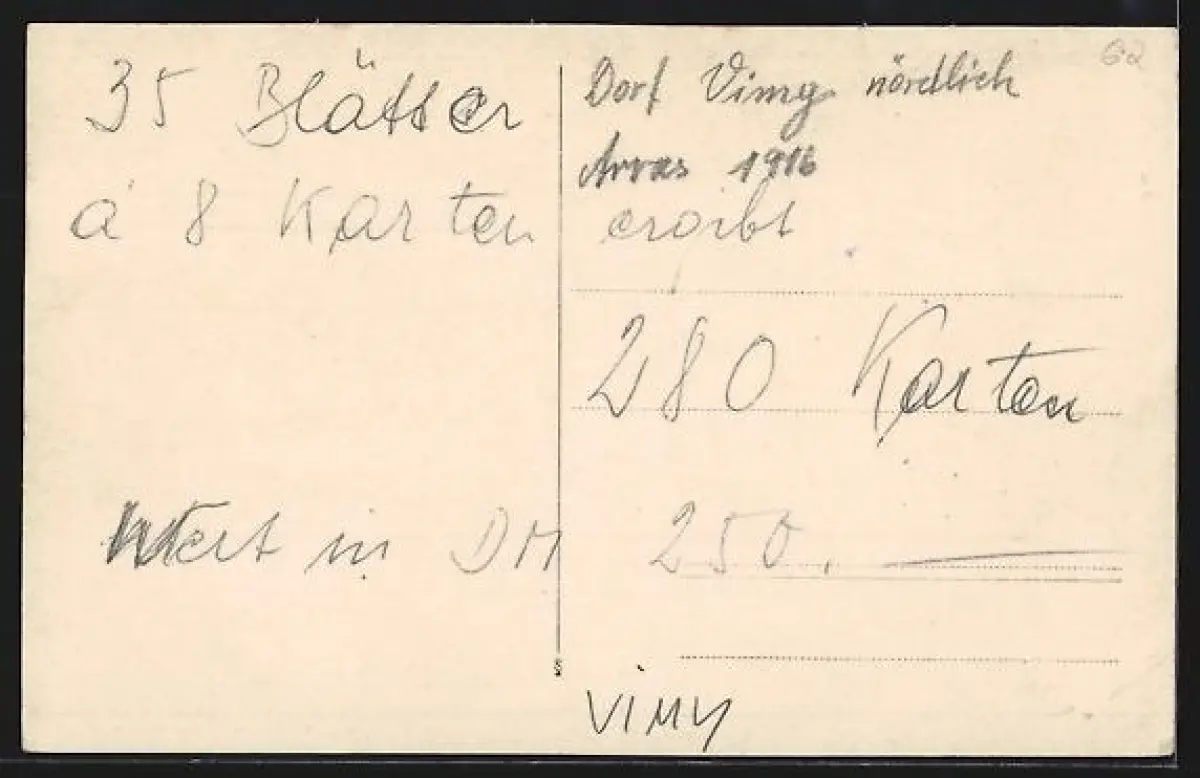 62
Dorf Vimy nördlich
Arras 1916
35 Blätter
á 8 Karten ergibt
280 Karten
Wert in DM 250.
VIMY